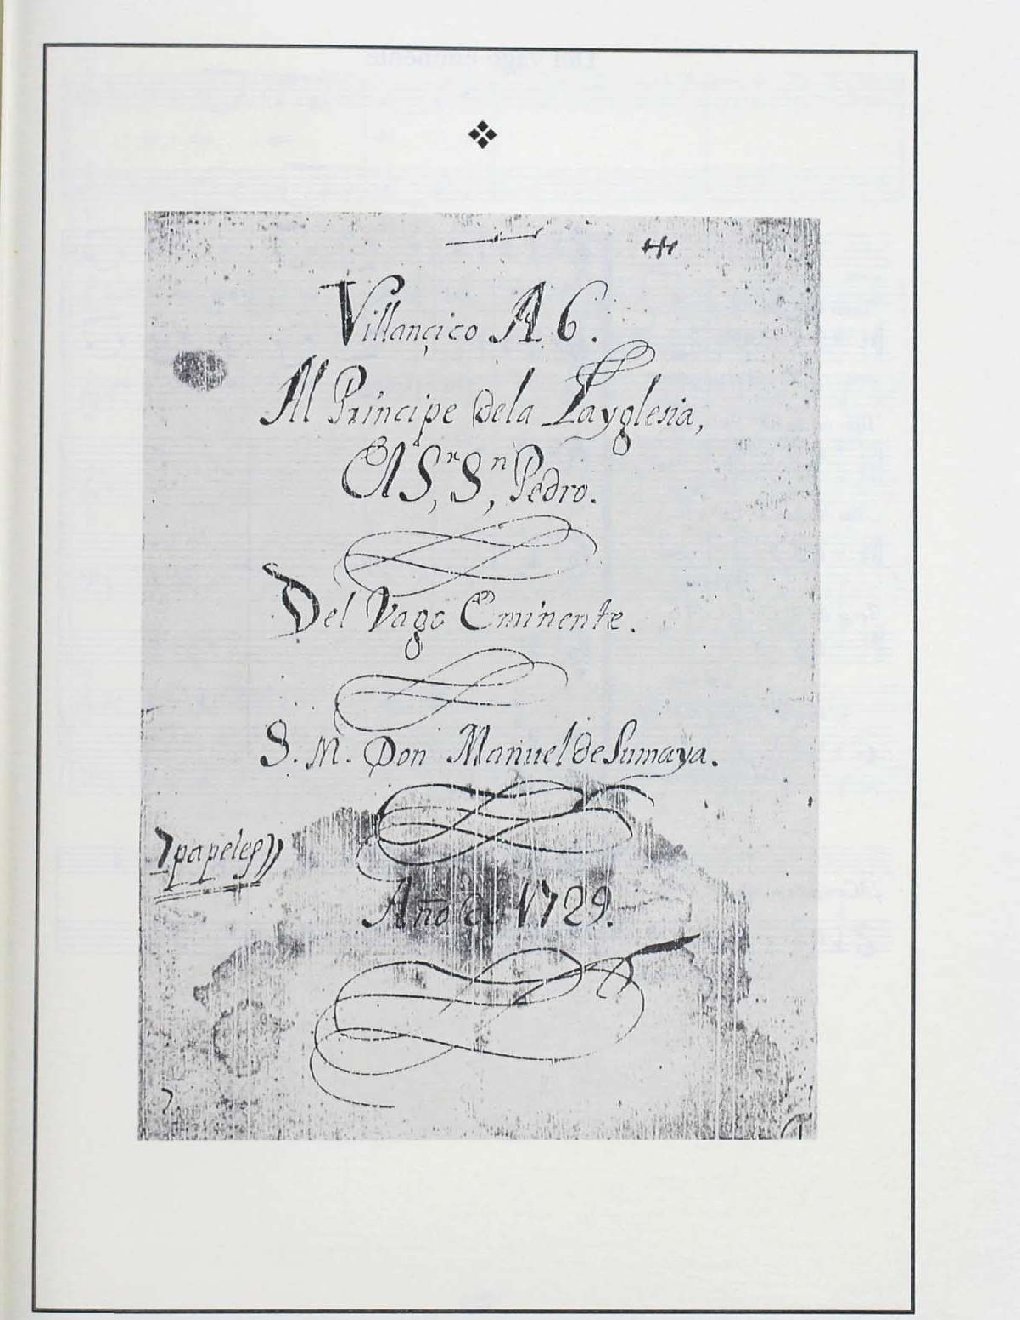 Villançico A 6.
Al Principe dela Layglesia,
El Sr, Sn, Pedro.
Del Vago Eminente.
S. M. Don Manuel de Sumaya.
7 papeles
Año de 1729.